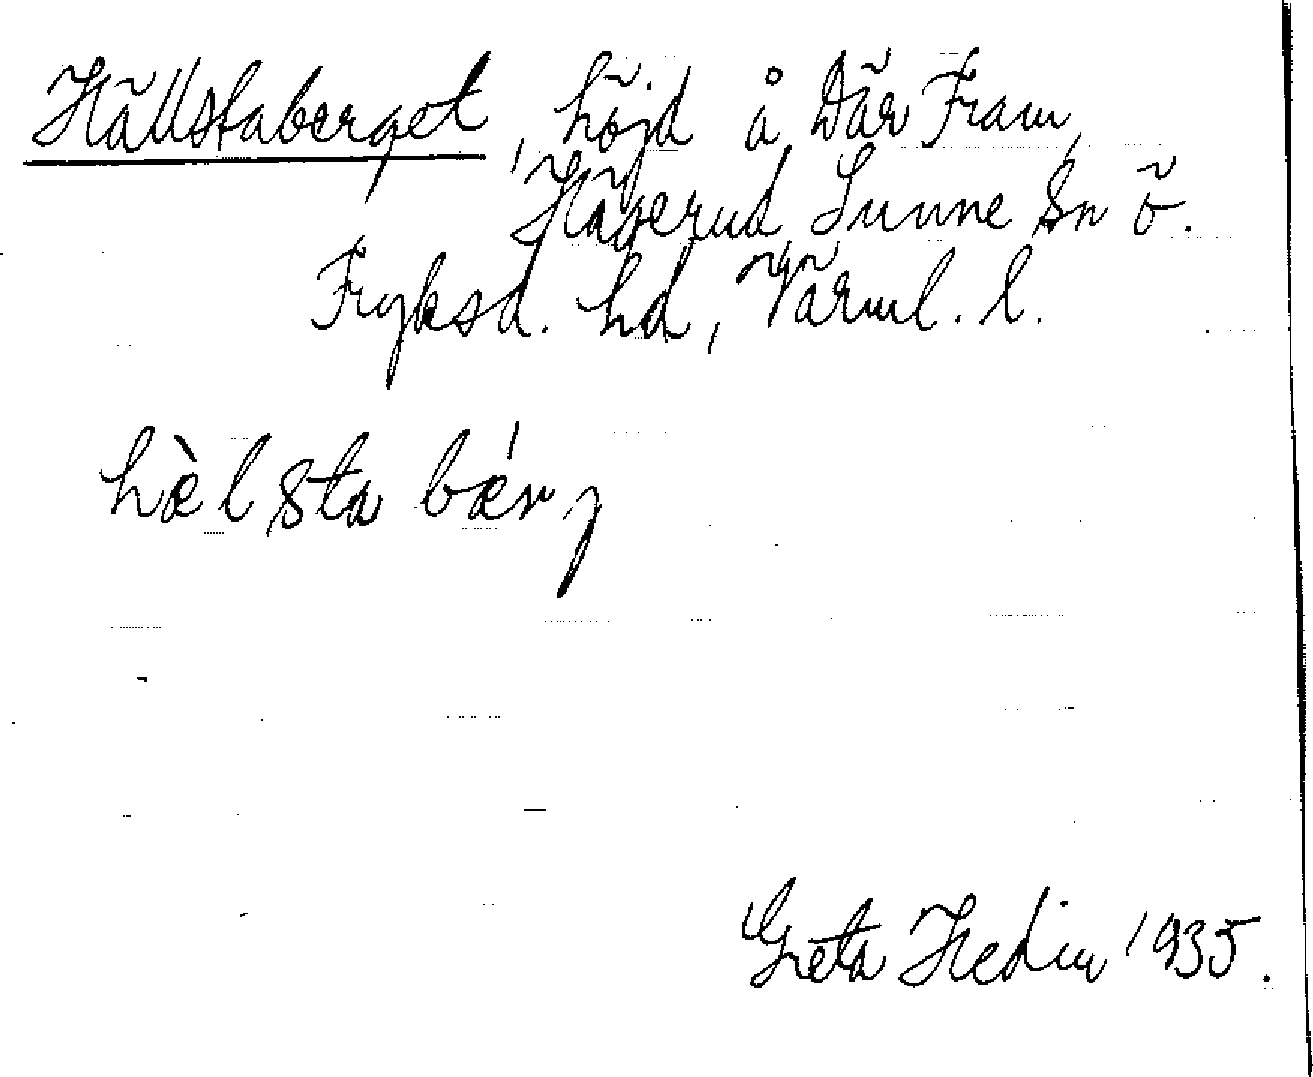 Hällstaberget, höjd å Där Fram,
Hägerud Sunne Sn ö.
Fryksd. hd, Värml. l.
hæ̀lsta bǽrj
Greta Hedin 1935.